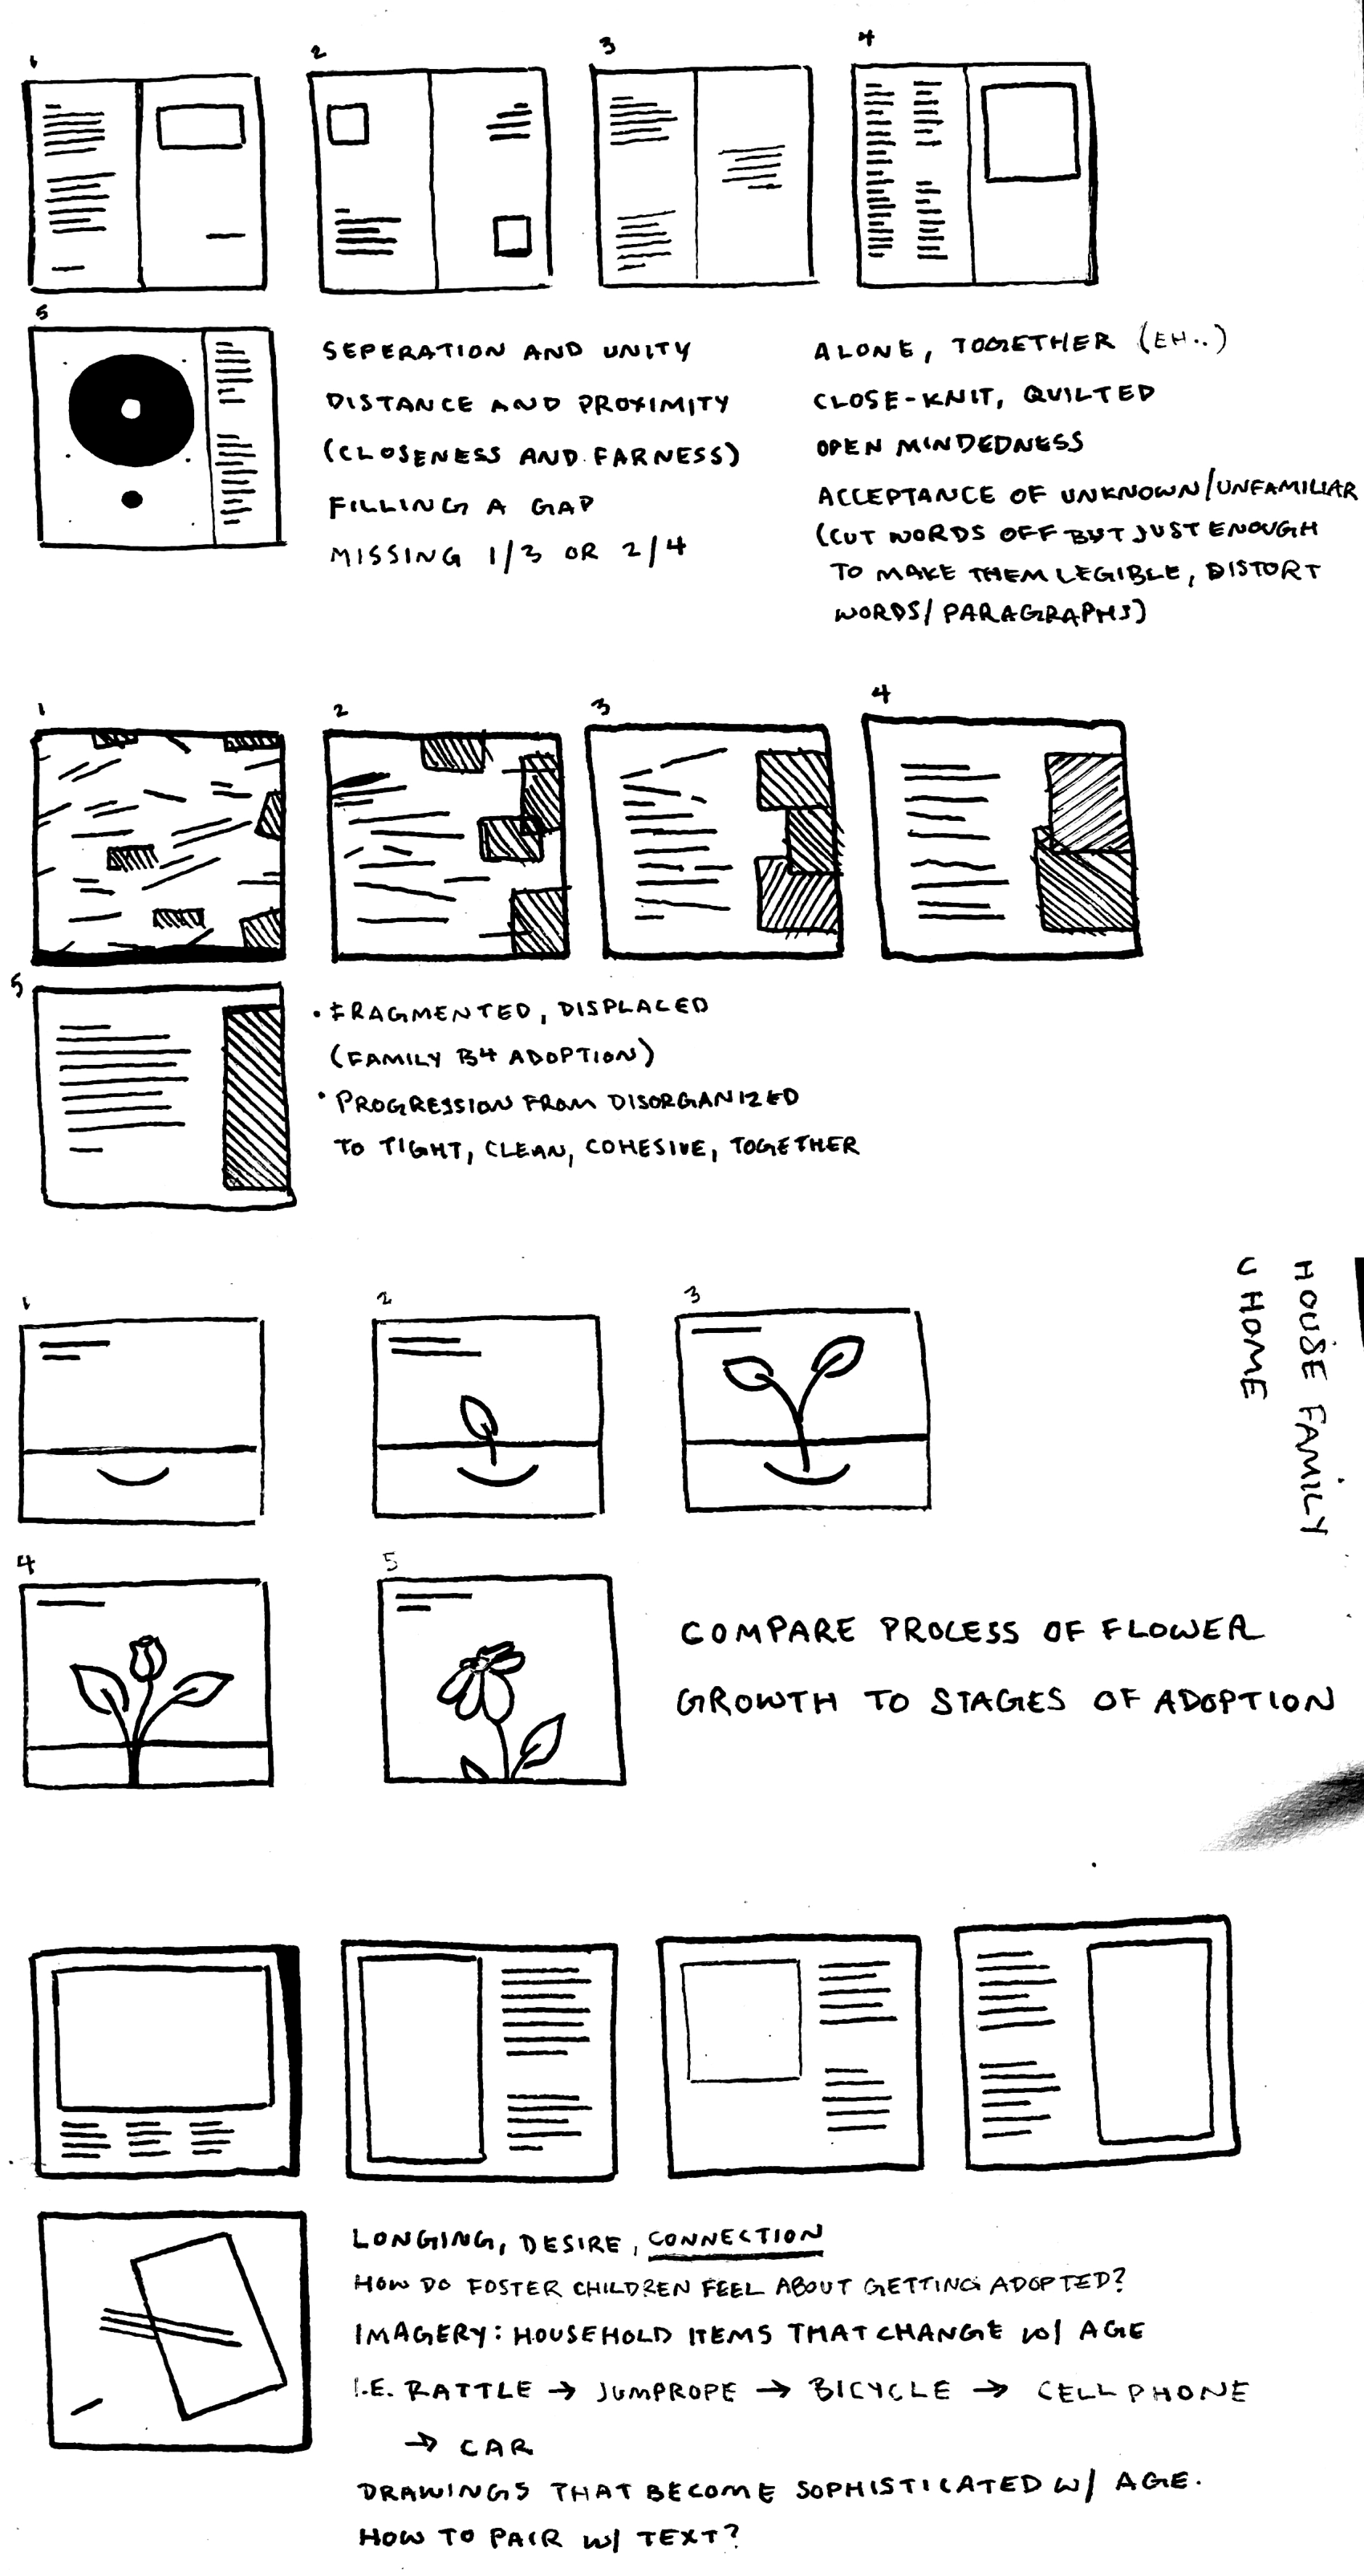 1
2
3
4
5
SEPERATION AND UNITY
DISTANCE AND PROXIMITY
(CLOSENESS AND FARNESS)
FILLING A GAP
MISSING 1/3 OR 2/4
ALONE, TOGETHER (EH..)
CLOSE-KNIT, QUILTED
OPEN MINDEDNESS
ACCEPTANCE OF UNKNOWN/UNFAMILIAR
(CUT WORDS OFF BUT JUST ENOUGH
TO MAKE THEM LEGIBLE, DISTORT
WORDS/PARAGRAPHS)
1
2
3
4
5
• FRAGMENTED, DISPLACED
(FAMILY B4 ADOPTION)
• PROGRESSION FROM DISORGANIZED
TO TIGHT, CLEAN, COHESIVE, TOGETHER
HOUSE FAMILY
HOME
1
2
3
4
5
COMPARE PROCESS OF FLOWER
GROWTH TO STAGES OF ADOPTION
LONGING, DESIRE, CONNECTION
HOW DO FOSTER CHILDREN FEEL ABOUT GETTING ADOPTED?
IMAGERY: HOUSEHOLD ITEMS THAT CHANGE W/ AGE
I.E. RATTLE → JUMPROPE → BICYCLE → CELL PHONE
→ CAR
DRAWINGS THAT BECOME SOPHISTICATED W/ AGE.
HOW TO PAIR W/ TEXT?